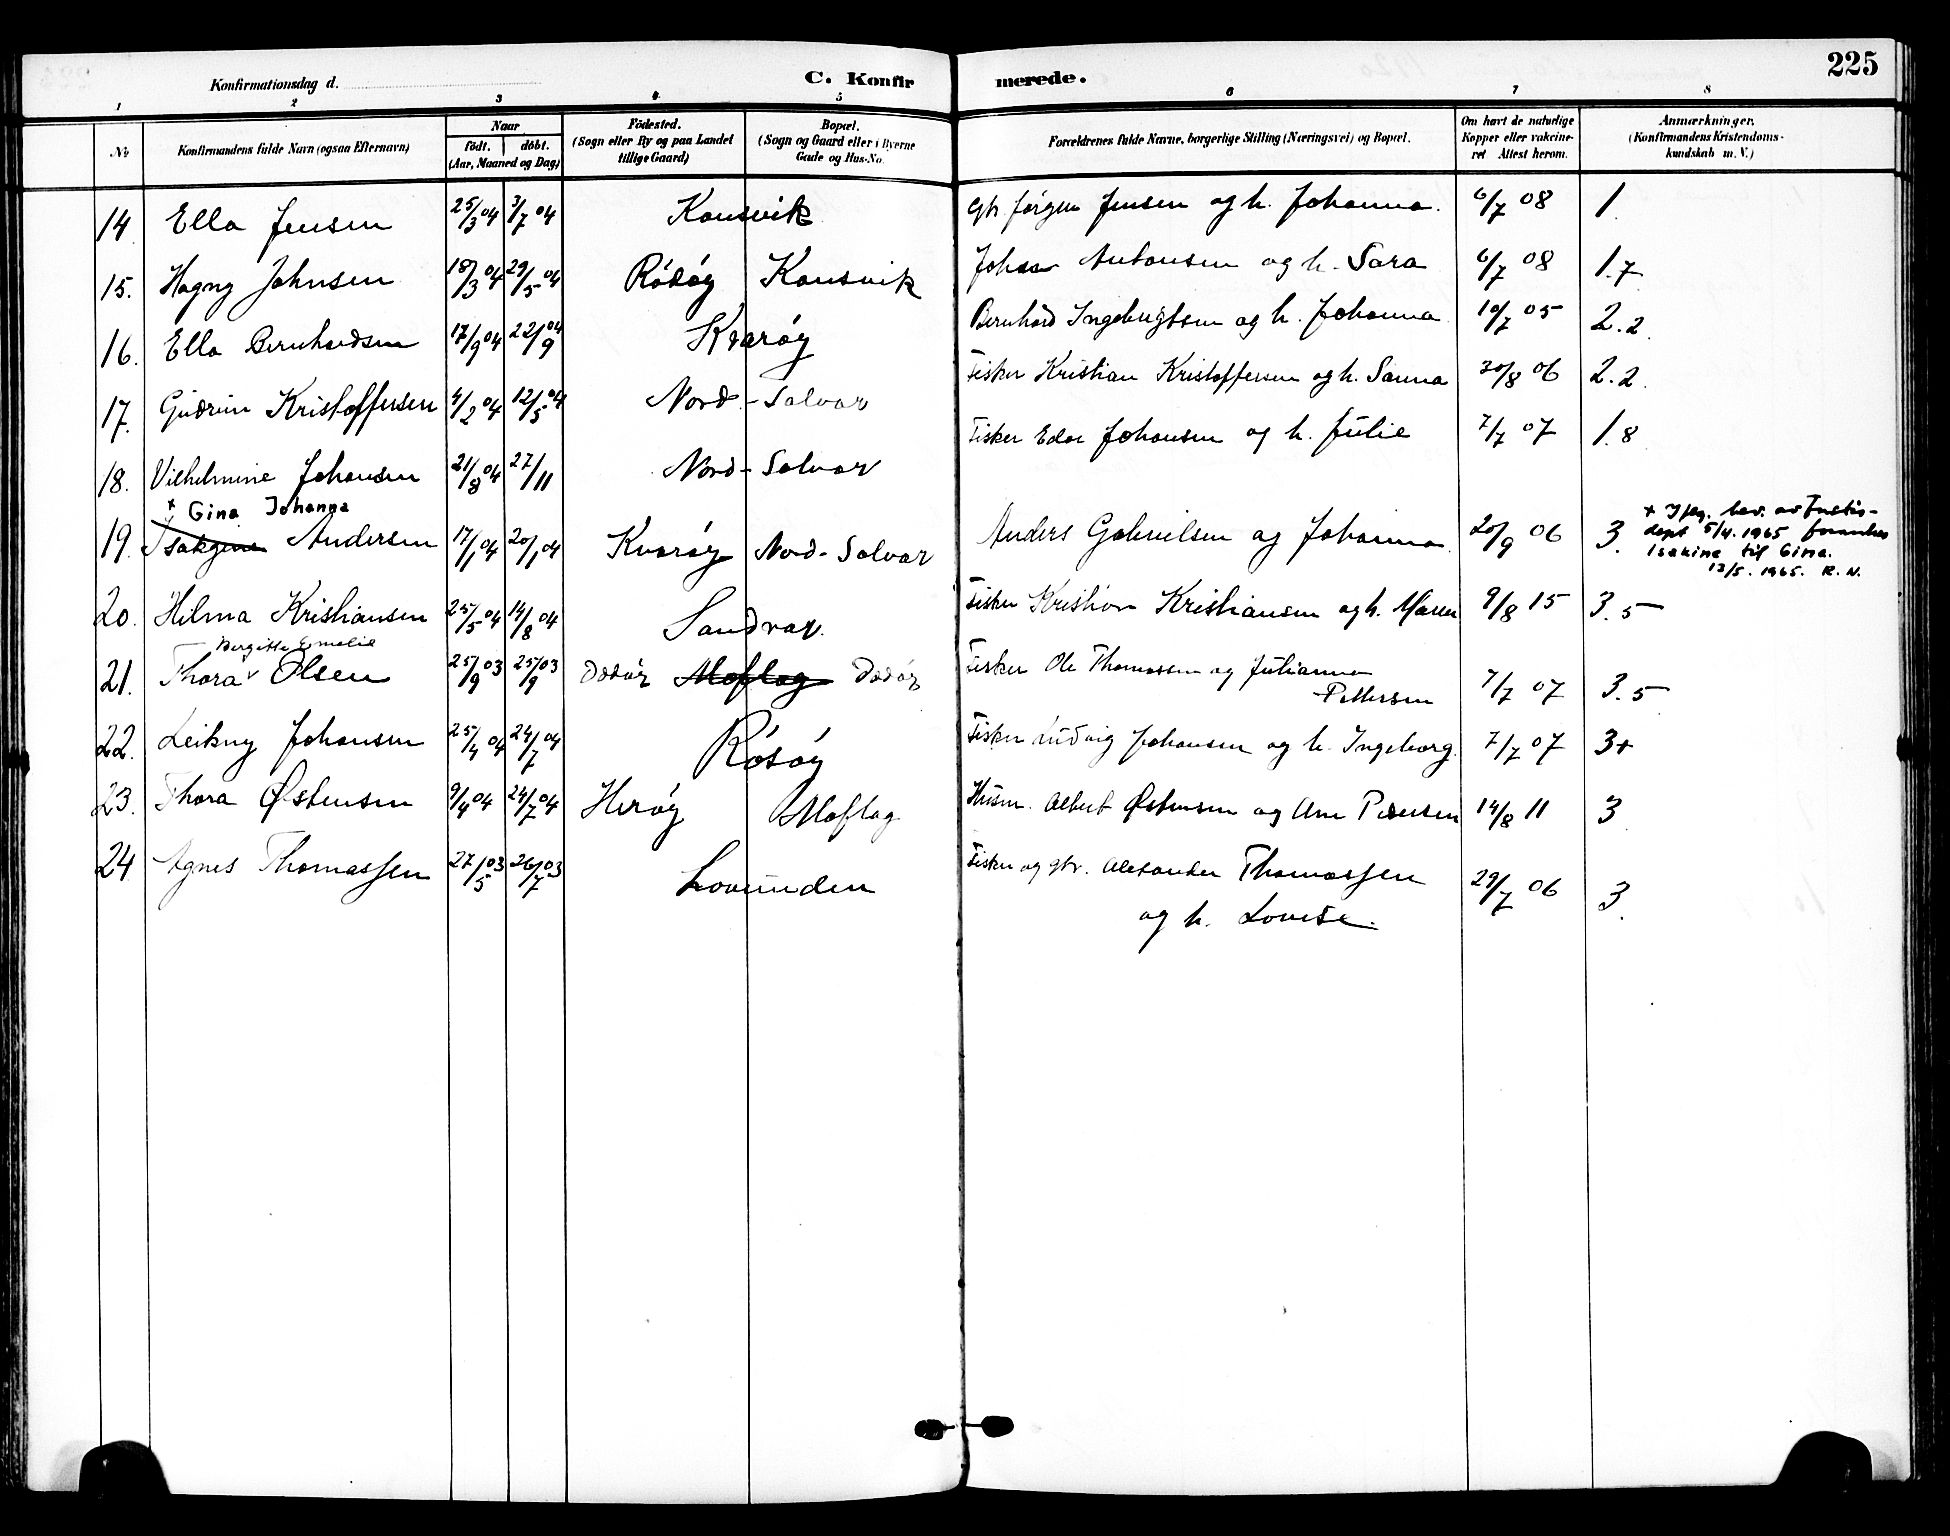 225
Konfirmationsdag d. C. Konfir merede.
1 2 3 4 5 6 7 8
No Konfirmandens fulde Navn (ogsaa Efternavn) Naar født. døbt. (Aar, Maaned og Dag) Födested. (Sogn eller By og paa Landet tillige Gaard) Bopæl. (Sogn og Gaard eller i Byerne Gade og Hus-No. Forældrenes fulde Navne, borgerlige Stilling (Næringsvei) og Bopæl. Om havt de naturlige Kopper eller vakcineret Attest herom. Anmærkninger. (Konfirmandens Kristendomskundskab m. V.)
14 Ella Jensen 25/3 04 3/7 04 Konsvik Gbr. Jørgen Jensen og h. Johanna. 6/7 08 1.
15. Hagny Johnsen 18/3 04 29/5 04 Rödöy Konsvik Johan Antonsen og h. Sara 6/7 08 1.7
16. Ella Bernhardsen 17/9 04 22/9 04 Kvaröy Bernhard Ingebrigtsen og h. Johanna 10/7 05 2.2.
17. Gudrun Kristoffersen 4/2 04 12/5 04 Nord-Solvær Fisker Kristian Kristoffersen og h. Sanna 20/8 06 2.2.
18. Vilhelmine Johansen 21/8 04 27/11 Nord-Solvær Fisker Edor Johansen og h. Julie 7/7 07 1.8
x Gina Johanna
19. Isakine Andersen 17/1 04 20/1 04 Kvaröy Nord-Solvær Anders Gabrielsen og Johanna 20/9 06 3.
+ Ifлg. bev. av Justis-
dept 5/4. 1965 forandres
Isakine til Gina.
13/5. 1965. R. N.
20. Hilma Kristiansen 25/5 04 14/8 04 Sandvær. Fisker Kristian Kristiansen og h. Maren 9/8 15 3.5
Bergitte Emelie
21. Thora v Olsen 25/9 03 25/9 03 Moflag Fisker Ole Thomassen og Julianna
Pettersen 7/7 07 3.5
22. Leikny Johansen 25/4 04 24/7 04 Rösöy Fisker Ludvig Johansen og h. Ingeborg. 7/7 07 3+
23. Thora Østensen 9/4 04 24/7 04 Heröy Moflag Husm. Albert Østensen og Ane Pedersen 14/8 11 3
24 Agnes Thomassen 27/5 03 26/7 03 Lovunden Fisker og gbr. Alexander Thomassen
og h. Lovise. 29/7 06 3.